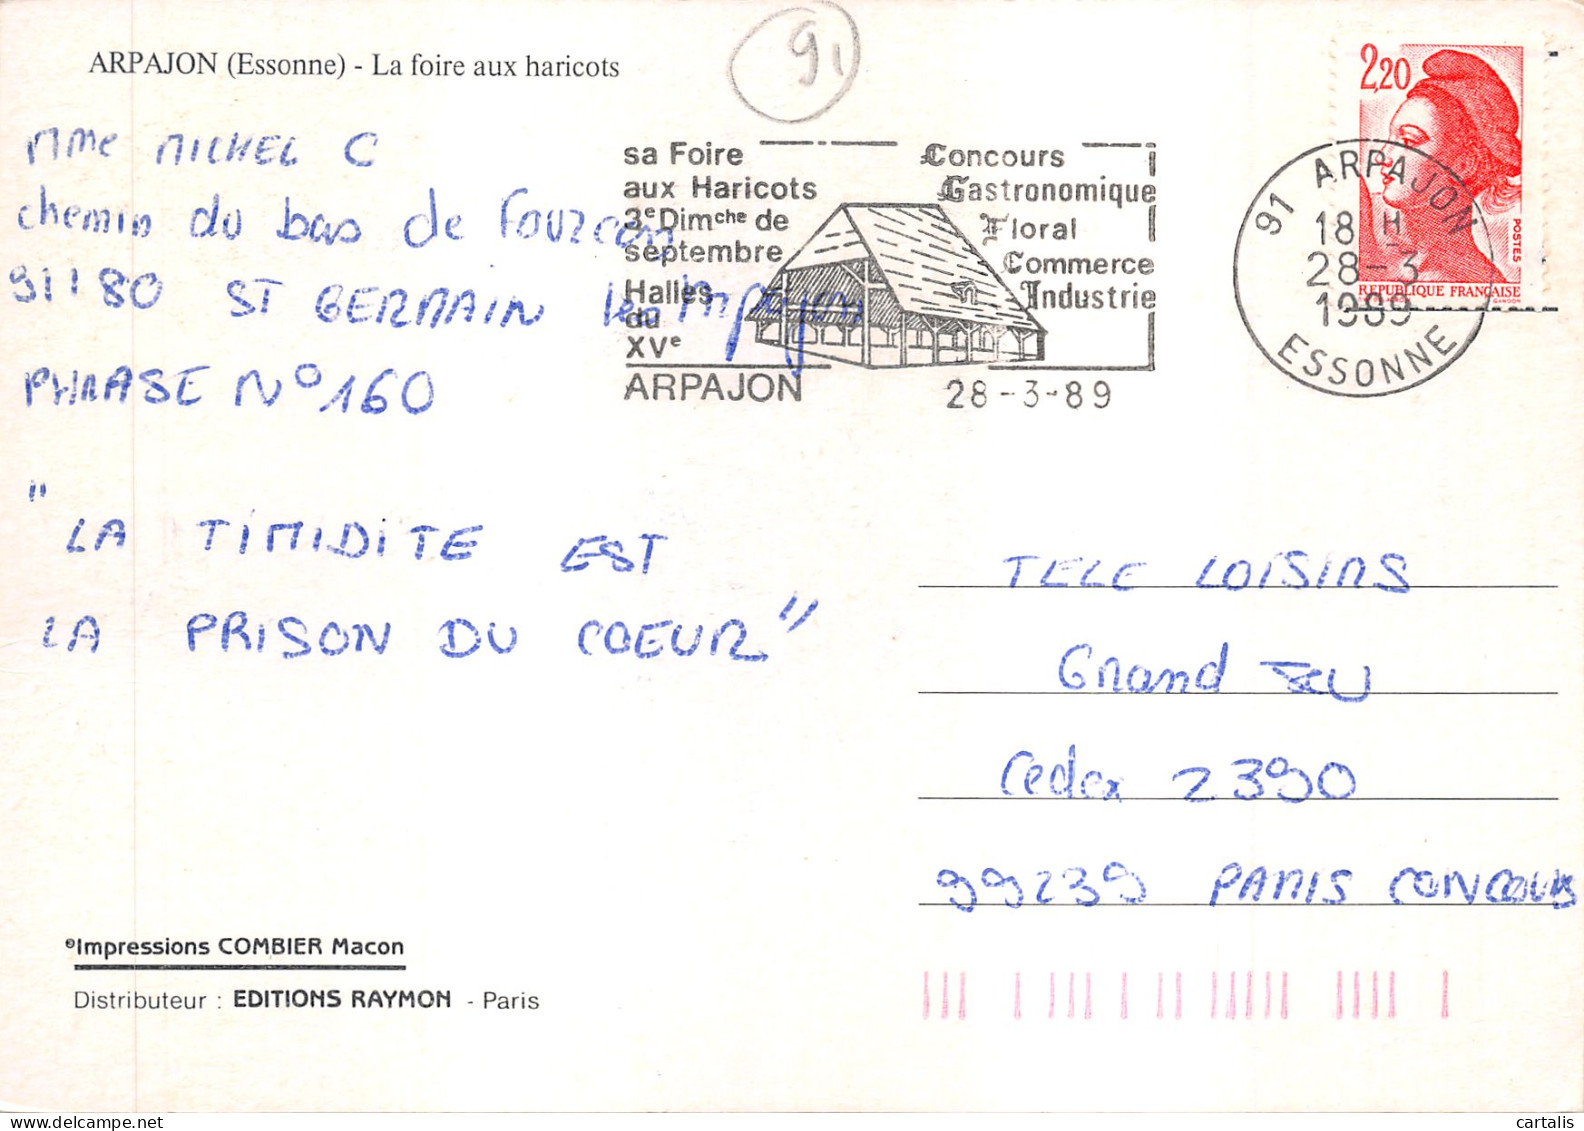 ARPAJON (Essonne) - La foire aux haricots
91
MME MICHEL C
chemin du bas de
91180 ST GERMAIN les Arpajon
PHRASE N° 160
"
LA TIMIDITE EST
LA PRISON DU COEUR"
sa Foire
aux Haricots
3e Dimche de
septembre
Halles
du
XVe
ARPAJON
Concours
Gastronomique
Floral
Commerce
Industrie
28-3-89
91 ARPAJON
18 H
28-3
1989
ESSONNE
2,20
POSTES
REPUBLIQUE FRANÇAISE
GANDON
TELE LOISIRS
Grand JEU
Cedex 2390
99239 PARIS CONCOURS
©Impressions COMBIER Macon
Distributeur : EDITIONS RAYMON - Paris
cartalis